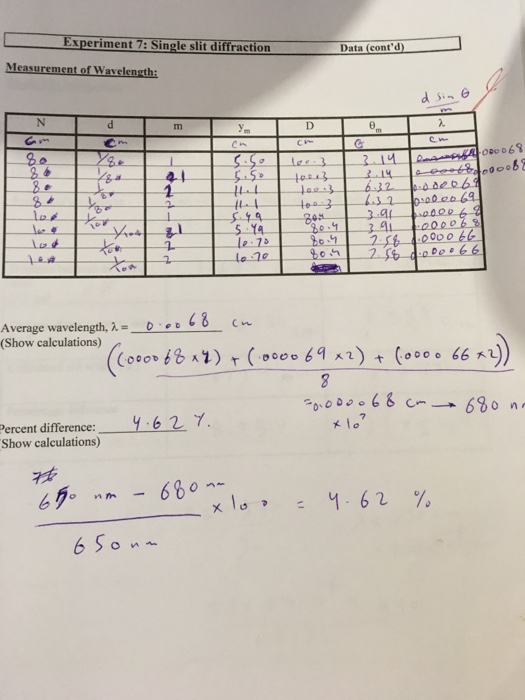 Experiment 7: Single slit diffraction Data (cont'd)
Measurement of Wavelength:
d sin θ
m
N d m ym D θm λ
cm cm cm cm
80 1/80 1 5.50 100.3 3.14 .000068
80 1/80 1 5.50 100.3 3.14 .000068
80 1/80 2 11.1 100.3 6.32 0.000069
80 1/80 2 11.1 100.3 6.32 0.000069
100 1/100 1 5.49 80.4 3.91 .000068
100 1/100 1 5.49 80.4 3.91 .000068
100 1/100 2 10.70 80.4 7.58 .000066
100 1/100 2 10.70 80.4 7.58 0.000066
Average wavelength, λ = 0.0068 cm
(Show calculations)
((.000068 x 4) + (.000069 x 2) + (.000066 x 2))
8
=0.000068 cm → 680 n
x 10⁷
Percent difference: 4.62 %.
Show calculations)
650 nm - 680 nm x 100 = 4.62 %
650 nm